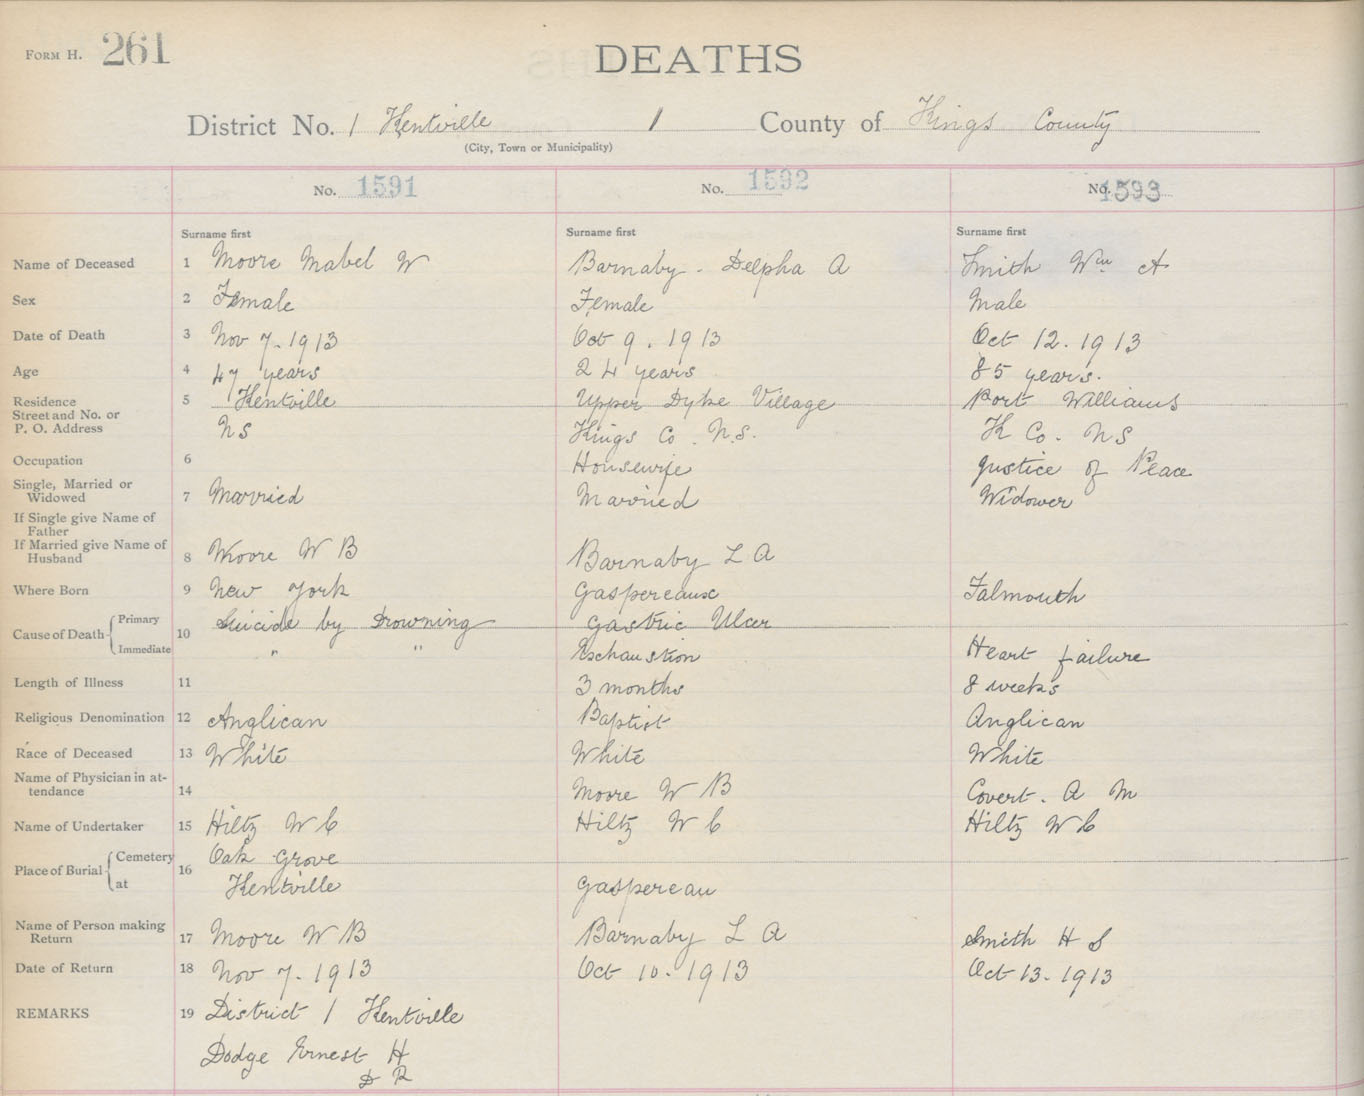 FORM H. 261
DEATHS
District No. 1 Kentville 1 County of Kings County
(City, Town or Municipality)
No. 1591 No. 1592 No. 1593
Surname first Surname first Surname first
Name of Deceased 1 Moore Mabel W Barnaby - Delpha A Smith Wm A
Sex 2 Female Female Male
Date of Death 3 Nov 7. 1913 Oct 9. 1913 Oct 12. 1913
Age 4 47 years 24 years 85 years.
Residence 5 Kentville Upper Dyke Village Port Williams
Street and No. or
P. O. Address NS Kings Co. N.S. K Co. NS
Occupation 6 Housewife Justice of Peace
Single, Married or
Widowed 7 Married Married Widower
If Single give Name of
Father
If Married give Name of
Husband 8 Moore W B Barnaby L A
Where Born 9 New York Gaspereaux Falmouth
Cause of Death Primary 10 Suicide by Drowning Gastric Ulcer
Immediate " " Exhaustion Heart failure
Length of Illness 11 3 months 8 weeks
Religious Denomination 12 Anglican Baptist Anglican
Race of Deceased 13 White White White
Name of Physician in at-
tendance 14 Moore W B Covert. A M
Name of Undertaker 15 Hiltz W C Hiltz W C Hiltz W C
Place of Burial Cemetery 16 Oak Grove
at Kentville Gaspereau
Name of Person making
Return 17 Moore W B Barnaby L A Smith H S
Date of Return 18 Nov 7. 1913 Oct 10. 1913 Oct 13. 1913
REMARKS 19 District 1 Kentville
Dodge Ernest H
D R